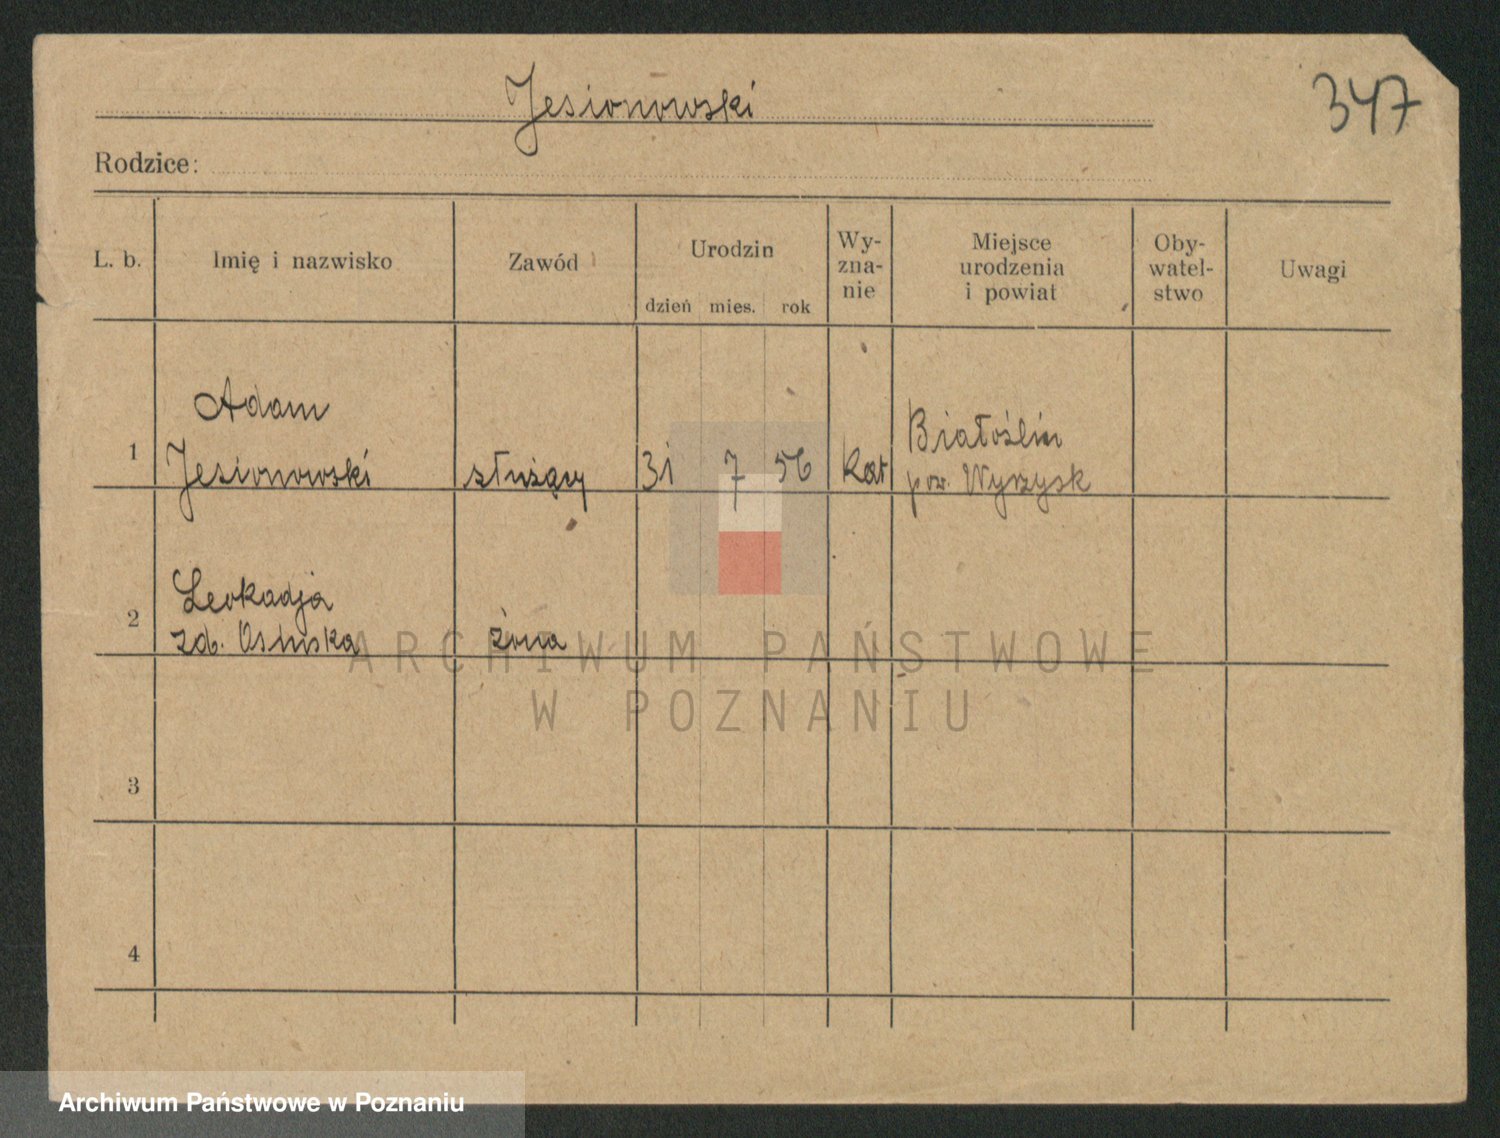 Jesionowski
347
Rodzice:
L. b.
Imię i nazwisko
Zawód
Urodzin
dzień mies. rok
Wy-
zna-
nie
Miejsce
urodzenia
i powiat
Oby-
watel-
stwo
Uwagi
1
Adam
Jesionowski
służący
31 7 56
kat
Białośliw
pow. Wyrzysk
2
Leokadja
zd. Osińska
żona
3
4
ARCHIWUM PAŃSTWOWE
W POZNANIU
Archiwum Państwowe w Poznaniu